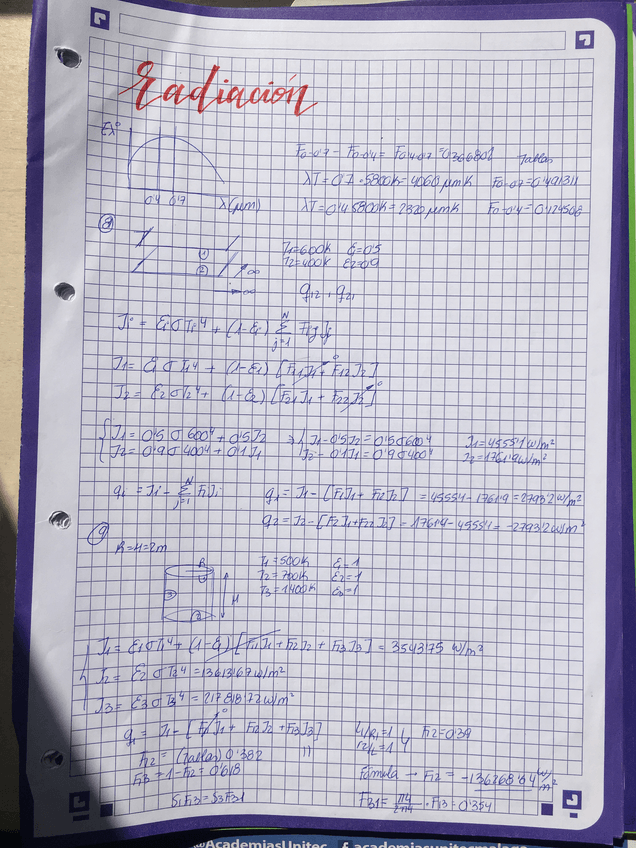 Radiación
Eλ°
0'4 0'7 λ(μm)
F0-0'7 - F0-0'4 = F0'4-0'7 = 0'366802 Tablas
λT = 0'7 · 5800K = 4060 μmK F0-0'7 = 0'491311
λT = 0'4 5800K = 2320 μmK F0-0'4 = 0'124508
8
1
2
∞
∞
T1=600K ε1=0'5
T2=400K ε2=0'9
q12, q21
Ji = εiσTi⁴ + (1-εi) Σ Fij Jj
N
j=1
J1 = ε1σT1⁴ + (1-ε1) [F11J1 + F12J2]
J2 = ε2σT2⁴ + (1-ε2) [F21J1 + F22J2]
J1 = 0'5 σ 600⁴ + 0'5J2 J1 - 0'5J2 = 0'5σ600⁴ J1=4555'1 w/m²
J2 = 0'9 σ 400⁴ + 0'1J1 J2 - 0'1J1 = 0'9σ400⁴ J2=1761'9 w/m²
qi = Ji - Σ FiJi q1 = J1 - [F1J1 + F12J2] = 4555'1 - 1761'9 = 2793'2 w/m²
N
j=1
q2 = J2 - [F21J1 + F22J2] = 1761'9 - 4555'1 = -2793'2 w/m²
9
R=H=2m
R
1
3
H
2
T1 = 500K ε1=1
T2 = 700K ε2=1
T3 = 1400K ε3=1
J1 = ε1σT1⁴ + (1-ε1) [F11J1 + F12J2 + F13J3] = 3543'75 w/m²
J2 = ε2 σT2⁴ = 13613'67 w/m²
J3 = ε3 σ T3⁴ = 217818'72 w/m²
q1 = J1 - [F11J1 + F12J2 + F13J3] L/R1=1 F12=0'39
F12 = (Tablas) 0'382 r2/L=1
F13 = 1-F12 = 0'618 Fórmula → F12 = -136268'64 w/m²
S1F13 = S3F31 F31 = · F13 = 0'354
@AcademiasUnitec
academiasunitecmalaga